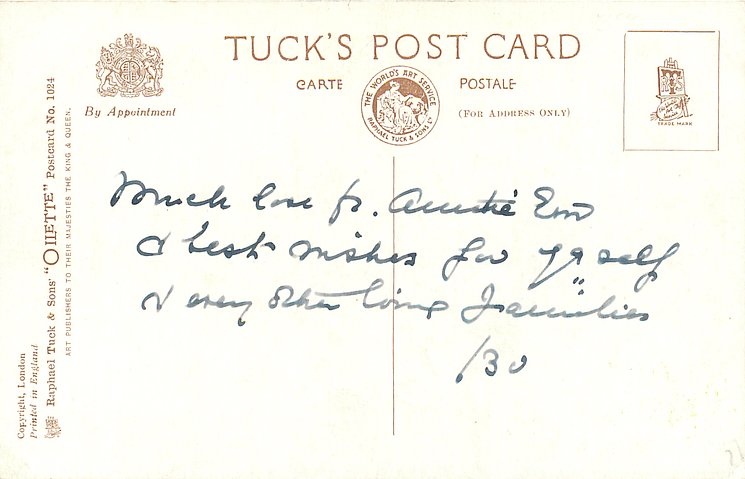 TUCK'S POST CARD
CARTE POSTALE
(FOR ADDRESS ONLY)
By Appointment
THE WORLD'S ART SERVICE
RAPHAEL TUCK & SONS LD
TRADE MARK
Much love fr. Auntie Em
& best wishes for yrself
& every other loving Families
Raphael Tuck & Sons' "OILETTE" Postcard No. 1024
ART PUBLISHERS TO THEIR MAJESTIES THE KING & QUEEN.
Copyright, London
Printed in England